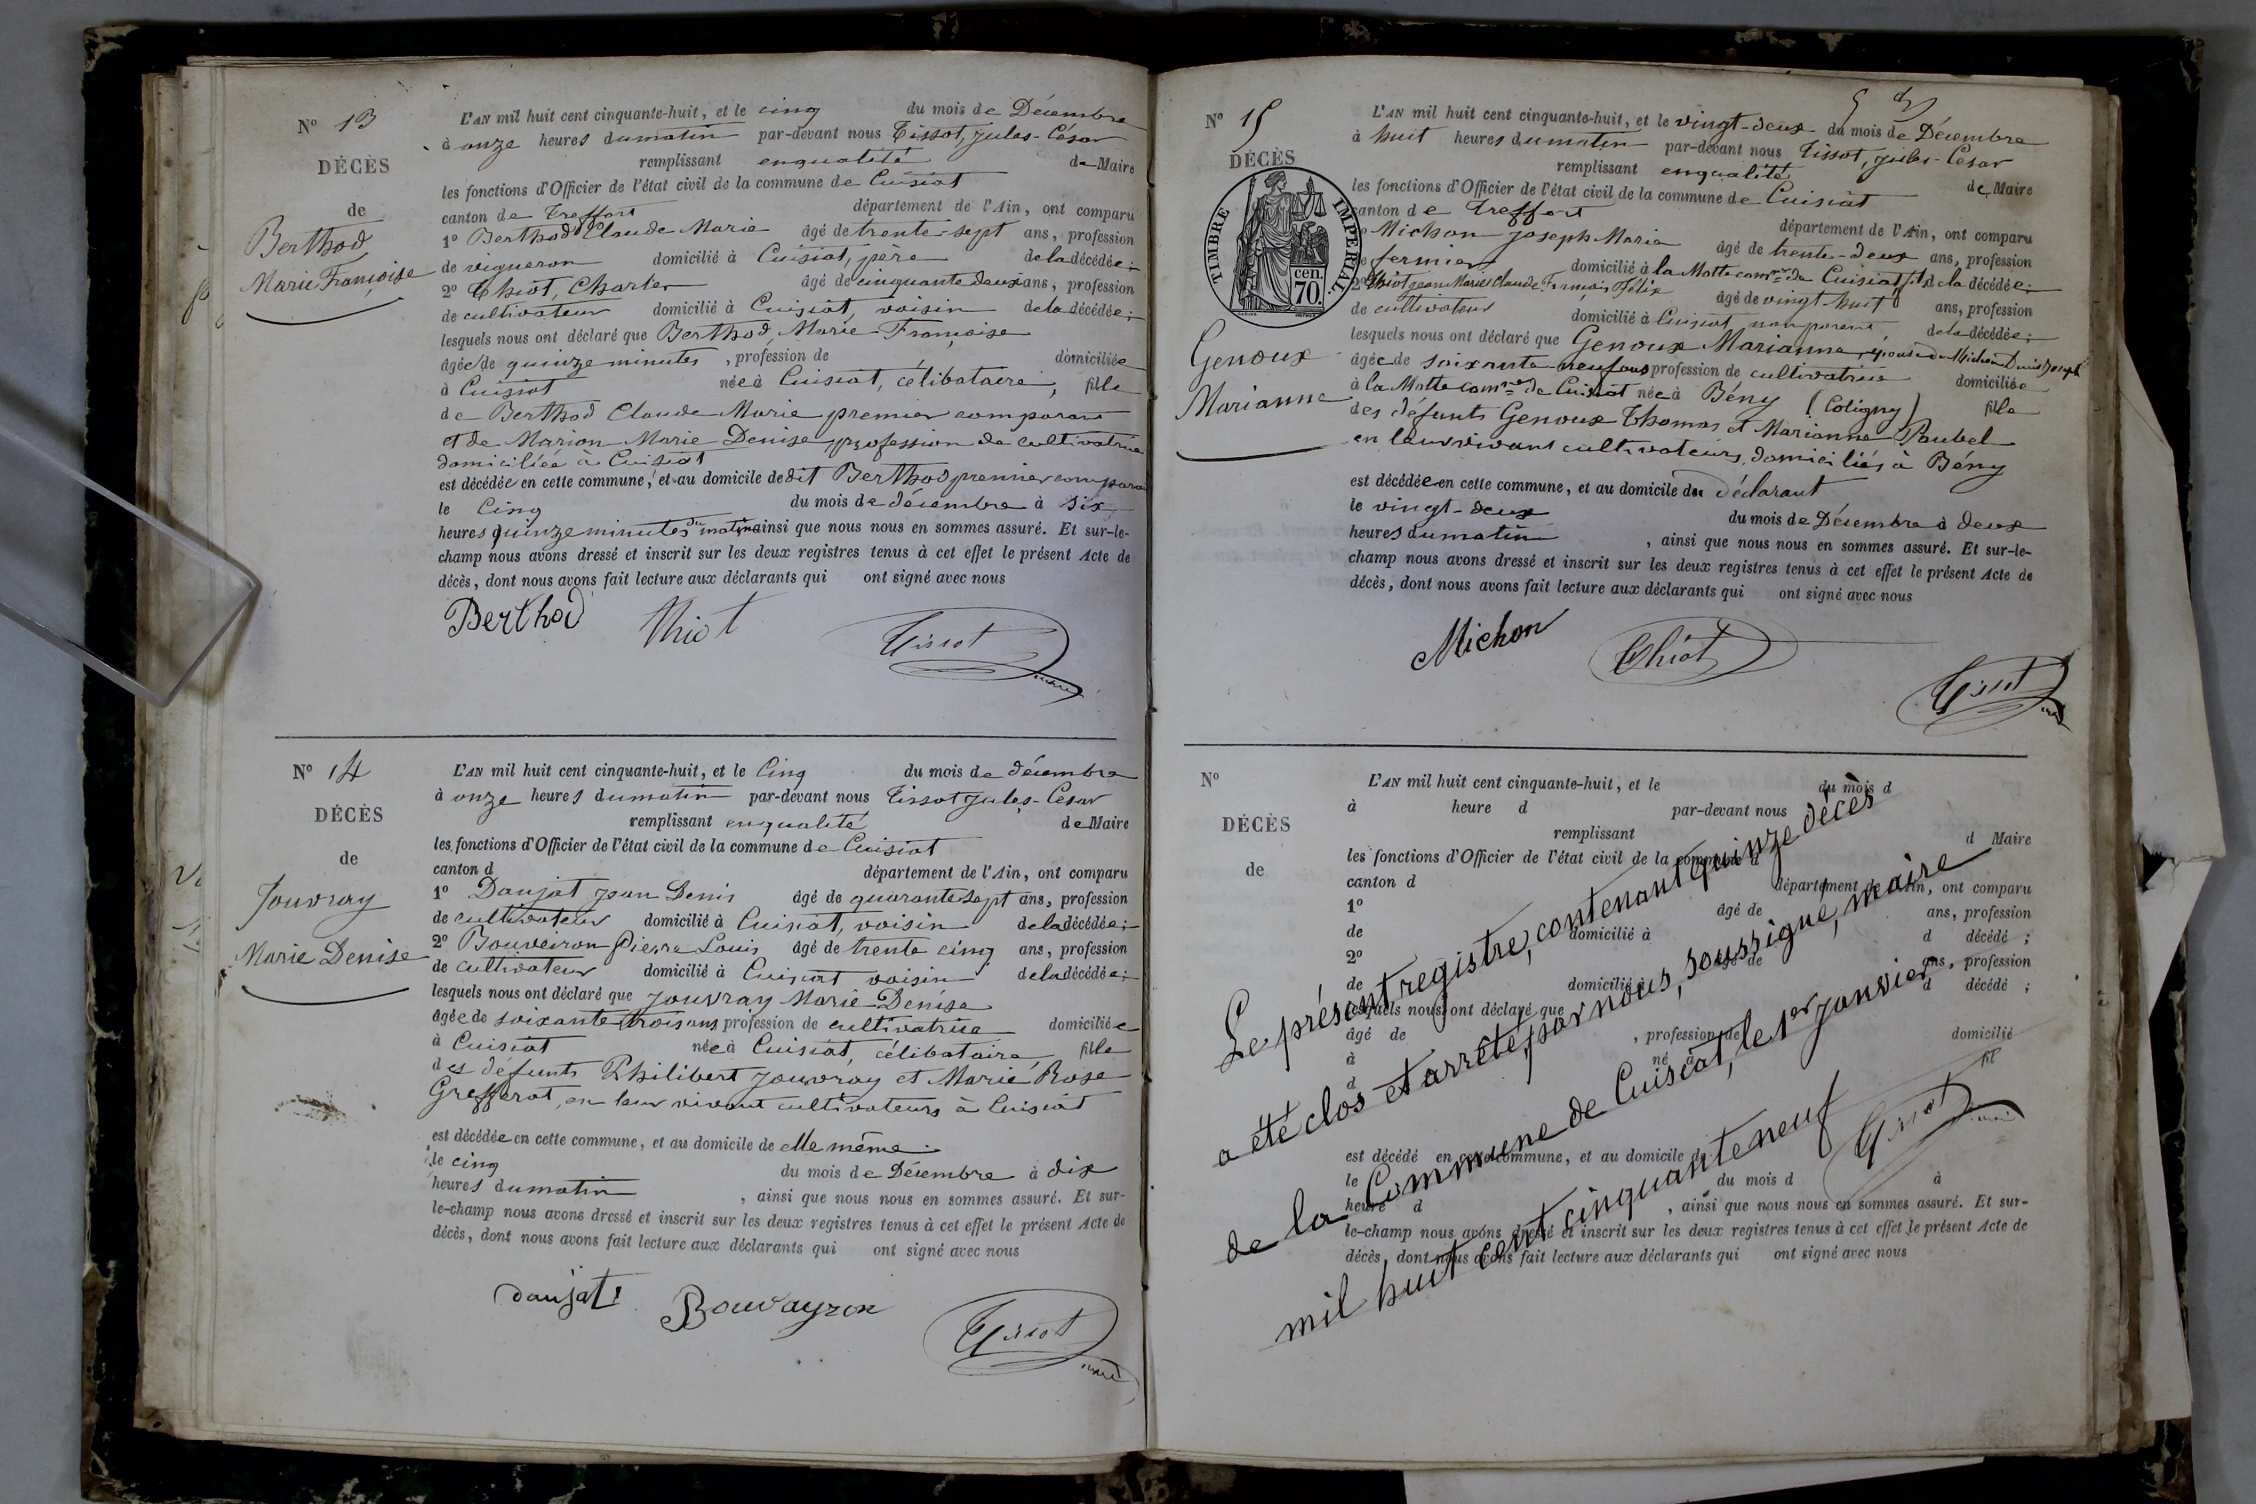 N° 13
DÉCÈS
de
Berthod
Marie Françoise
L'AN mil huit cent cinquante-huit, et le cinq du mois de Décembre
à onze heures du matin par-devant nous Tissot, Jules-César
remplissant en qualité de Maire
les fonctions d'Officier de l'état civil de la commune de Cuisiat
canton de Treffort département de l'Ain, ont comparu
1° Berthod Claude Marie âgé de trente-sept ans, profession
de vigneron domicilié à Cuisiat, père de la décédée;
2° Thiot, Charles âgé de cinquante deux ans, profession
de cultivateur domicilié à Cuisiat, voisin de la décédée;
lesquels nous ont déclaré que Berthod, Marie-Françoise
âgée de quinze minutes, profession de domiciliée
à Cuisiat née à Cuisiat, célibataire, fille
de Berthod Claude Marie premier comparant
et de Marion Marie Denise, profession de cultivatrice
domiciliée à Cuisiat
est décédée en cette commune, et au domicile de dit Berthod premier comparant
le Cinq du mois de décembre à six
heures quinze minutes du matin ainsi que nous nous en sommes assuré. Et sur-le-
champ nous avons dressé et inscrit sur les deux registres tenus à cet effet le présent Acte de
décès, dont nous avons fait lecture aux déclarants qui ont signé avec nous
Berthod Thiot Tissot
maire
N° 14
DÉCÈS
de
Jouvray
Marie Denise
L'AN mil huit cent cinquante-huit, et le Cinq du mois de décembre
à onze heures du matin par-devant nous Tissot Jules-César
remplissant en qualité de Maire
les fonctions d'Officier de l'état civil de la commune de Cuisiat
canton d département de l'Ain, ont comparu
1° Daujat Jean Denis âgé de quarante sept ans, profession
de cultivateur domicilié à Cuisiat, voisin de la décédée;
2° Bouveiron Pierre Louis âgé de trente cinq ans, profession
de cultivateur domicilié à Cuisiat voisin de la décédée;
lesquels nous ont déclaré que Jouvray Marie-Denise
âgée de soixante trois ans profession de cultivatrice domiciliée
à Cuisiat née à Cuisiat, célibataire fille
des défunts Philibert Jouvray et Marie Rose
Grefferat, en leur vivant cultivateurs à Cuisiat
est décédée en cette commune, et au domicile de elle même
le cinq du mois de Décembre à dix
heures du matin, ainsi que nous nous en sommes assuré. Et sur-
le-champ nous avons dressé et inscrit sur les deux registres tenus à cet effet le présent Acte de
décès, dont nous avons fait lecture aux déclarants qui ont signé avec nous
daujat Bouvayron Tissot
maire
N° 15
DÉCÈS
TIMBRE IMPERIAL
cen.
70.
Genoux
Marianne
L'AN mil huit cent cinquante-huit, et le vingt-deux du mois de Décembre
à huit heures du matin par-devant nous Tissot, Jules-César
remplissant en qualité de Maire
les fonctions d'Officier de l'état civil de la commune de Cuisiat
canton de Treffort département de l'Ain, ont comparu
Michon Joseph Marie âgé de trente-deux ans, profession
de fermier domicilié à la Motte comne de Cuisiat, fils de la décédée;
2° Thiot Jean Marie Claude François Félix âgé de vingt huit ans, profession
de cultivateur domicilié à Cuisiat non parent de la décédée;
lesquels nous ont déclaré que Genoux Marianne, épouse de Michon Denis Joseph
âgée de soixante neuf ans profession de cultivatrice domiciliée
à la Motte comne de Cuisiat née à Bény (Coligny) fille
des défunts Genoux Thomas et Marianne Paubel
en leur vivant cultivateurs, domiciliés à Bény
est décédée en cette commune, et au domicile du déclarant
le vingt-deux du mois de Décembre à deux
heures du matin, ainsi que nous nous en sommes assuré. Et sur-le-
champ nous avons dressé et inscrit sur les deux registres tenus à cet effet le présent Acte de
décès, dont nous avons fait lecture aux déclarants qui ont signé avec nous
Michon Thiot Tissot
N°
DÉCÈS
de
L'AN mil huit cent cinquante-huit, et le du mois d
à heure d par-devant nous
remplissant d Maire
les fonctions d'Officier de l'état civil de la commune d
canton d département de l'Ain, ont comparu
1° âgé de ans, profession
de domicilié à d décédé ;
2° âgé de ans, profession
de domicilié à d décédé ;
lesquels nous ont déclaré que
âgé de , profession de domicilié
à né à fil
d
est décédé en cette commune, et au domicile d
le du mois d à
heure d , ainsi que nous nous en sommes assuré. Et sur-
le-champ nous avons dressé et inscrit sur les deux registres tenus à cet effet le présent Acte de
décès, dont nous avons fait lecture aux déclarants qui ont signé avec nous
Le présent registre, contenant quinze décès
a été clos et arrêté, par nous, soussigné, maire
de la Commune de Cuisiat, le 1er janvier
mil huit cent cinquante neuf
Tissot